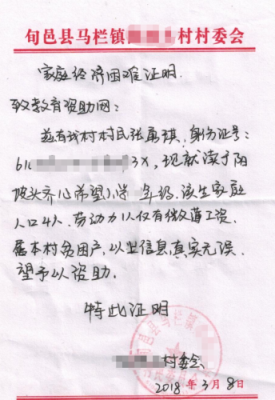 旬邑县马栏镇村村委会
家庭经济困难证明
致教育资助网:
兹有我村村民张甭琪,身份证号:
61 3X,现就读于阳
坡头齐心希望小学 年级,该生家庭
人口4人,劳动力1人仅有微薄工资,
属本村贫困户,以上信息真实无误,
望予以资助。
特此证明
村委会
2018年3月8日
旬邑县马栏镇